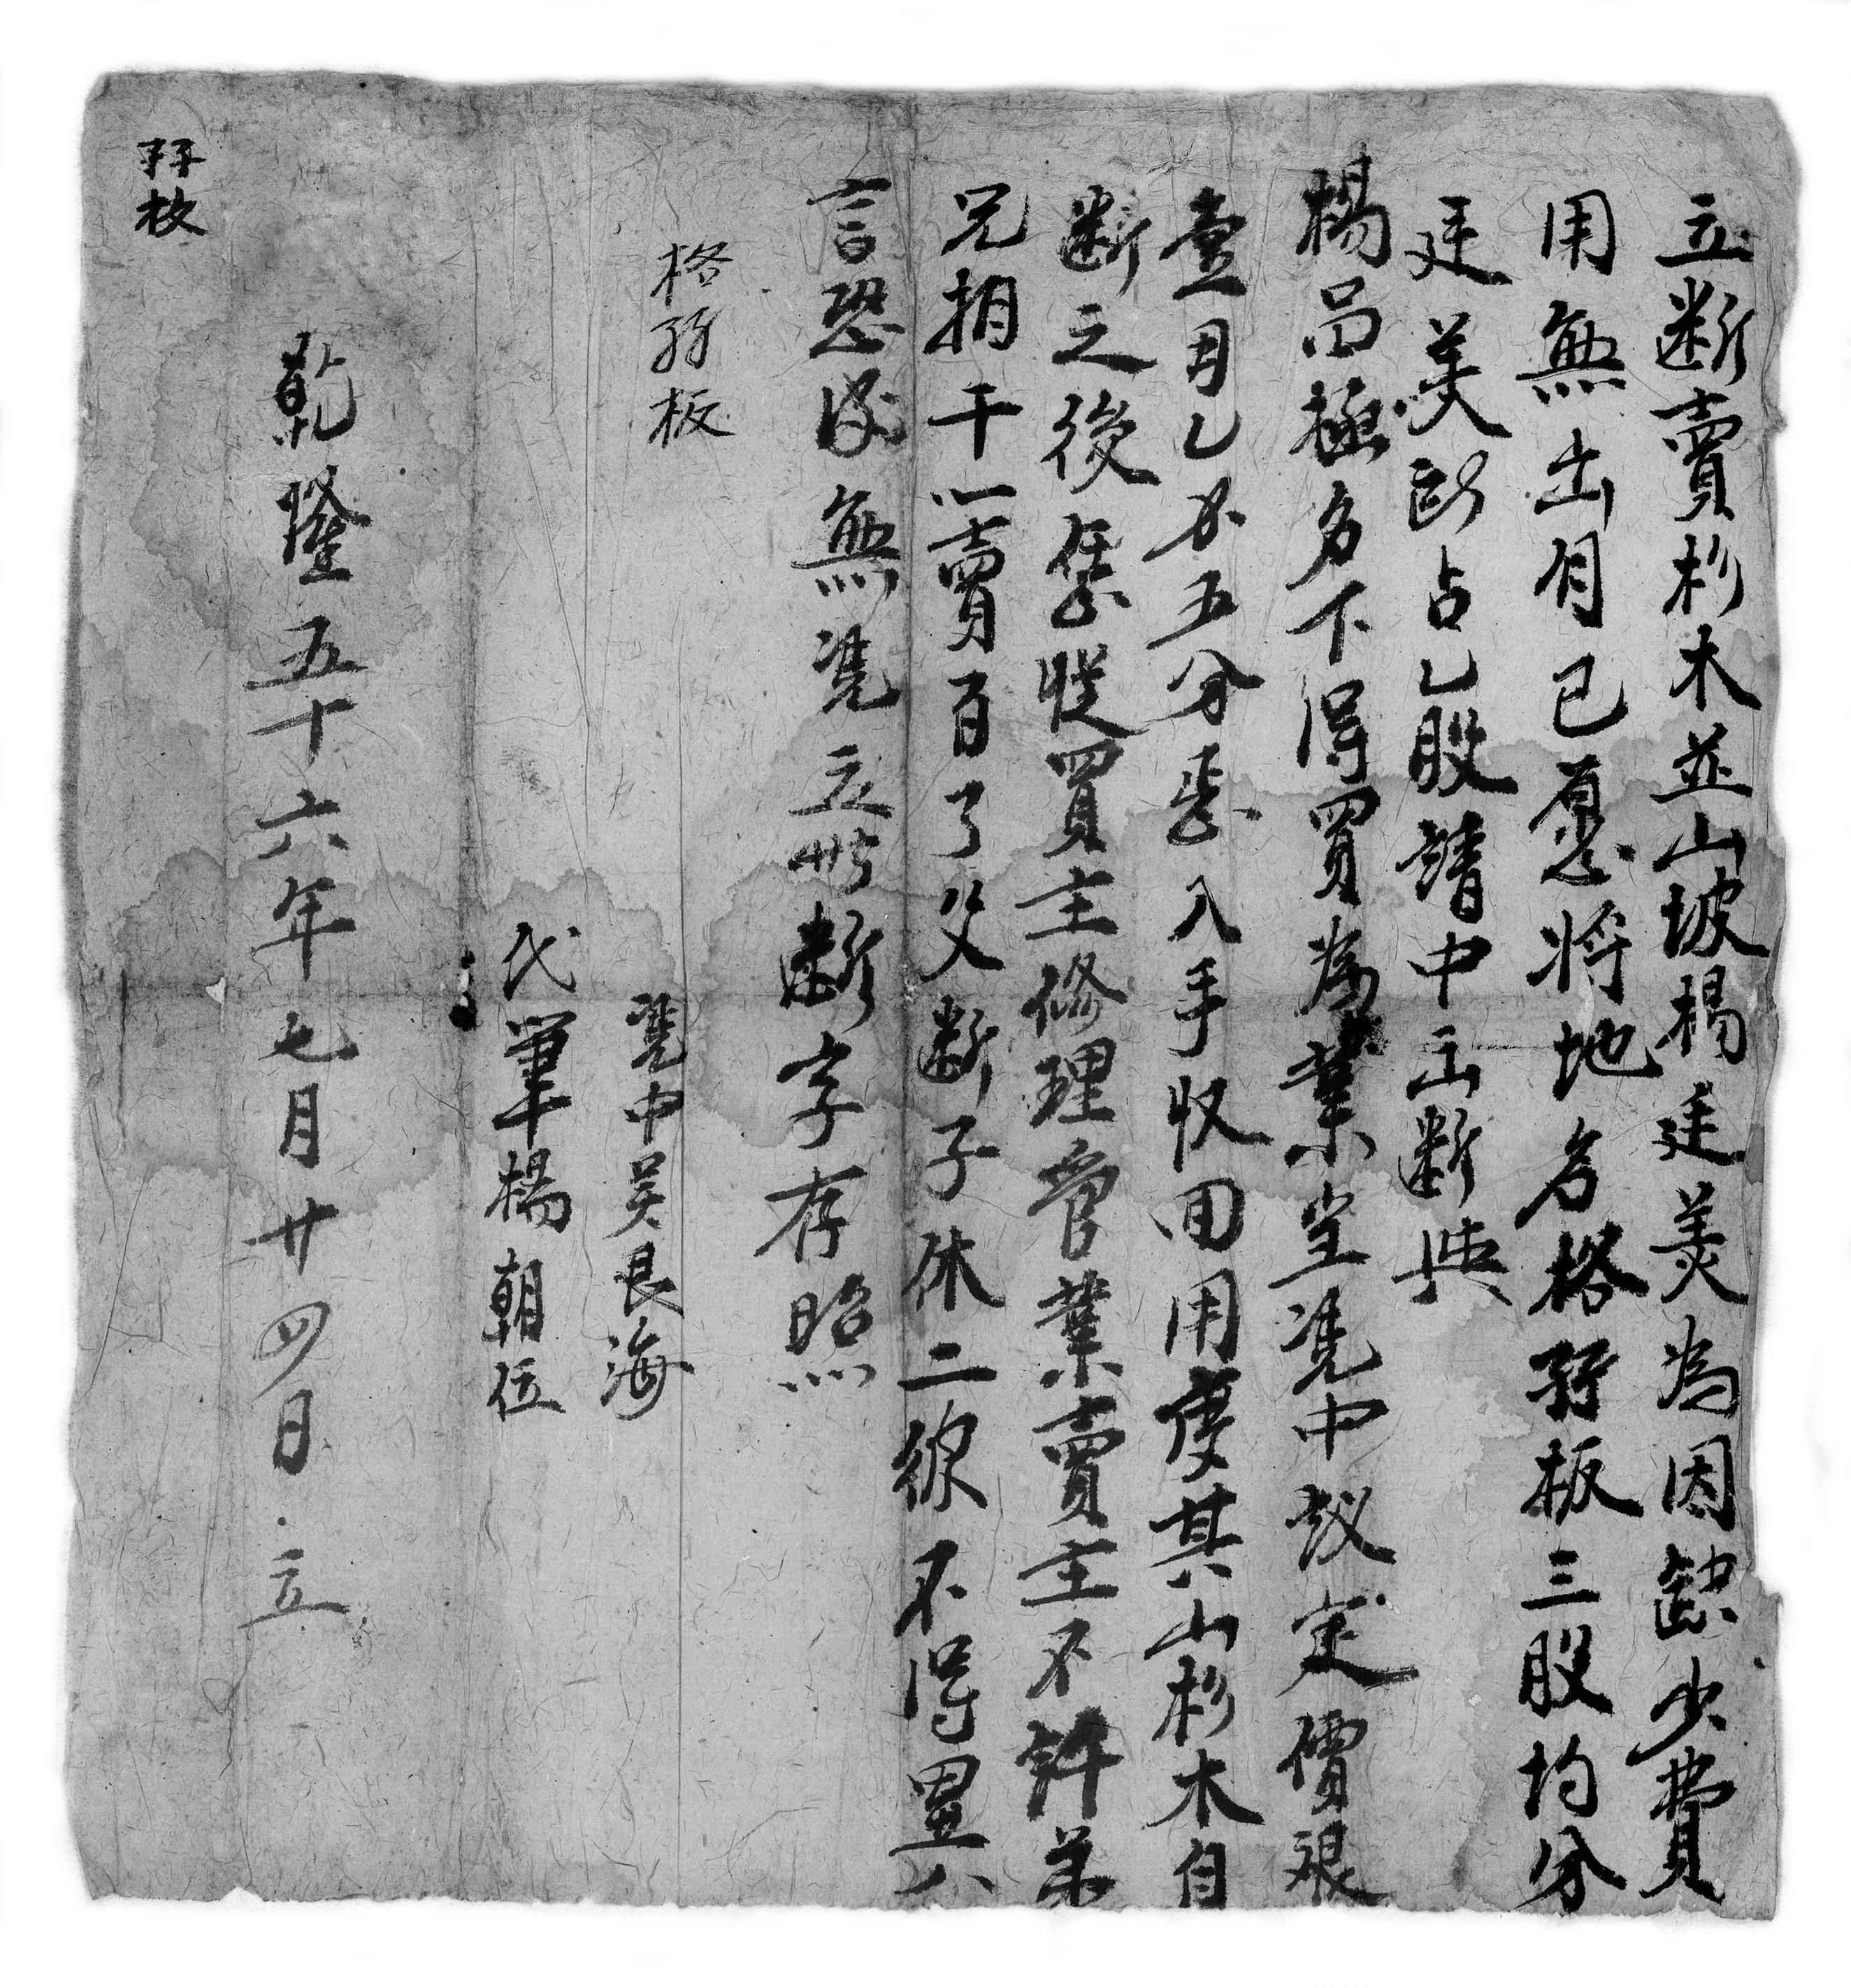 立斷賣杉木並山坡楊廷美為因缺少費
用無出自己愿將地名格孖板三股均分
廷美所占乙股請中出斷與
楊昌極名下得買為業當憑中议定價銀
壹両乙分五分乖入手收回用度其山杉木自
斷之後任從買主修理管業賣主不許弟
兄相干一賣百了父斷子休二彼不得異
言恐後無憑立此斷字存照
格孖板
憑中吳良海
代筆楊朝位
乾隆五十六年七月廿四日 立
孖枚